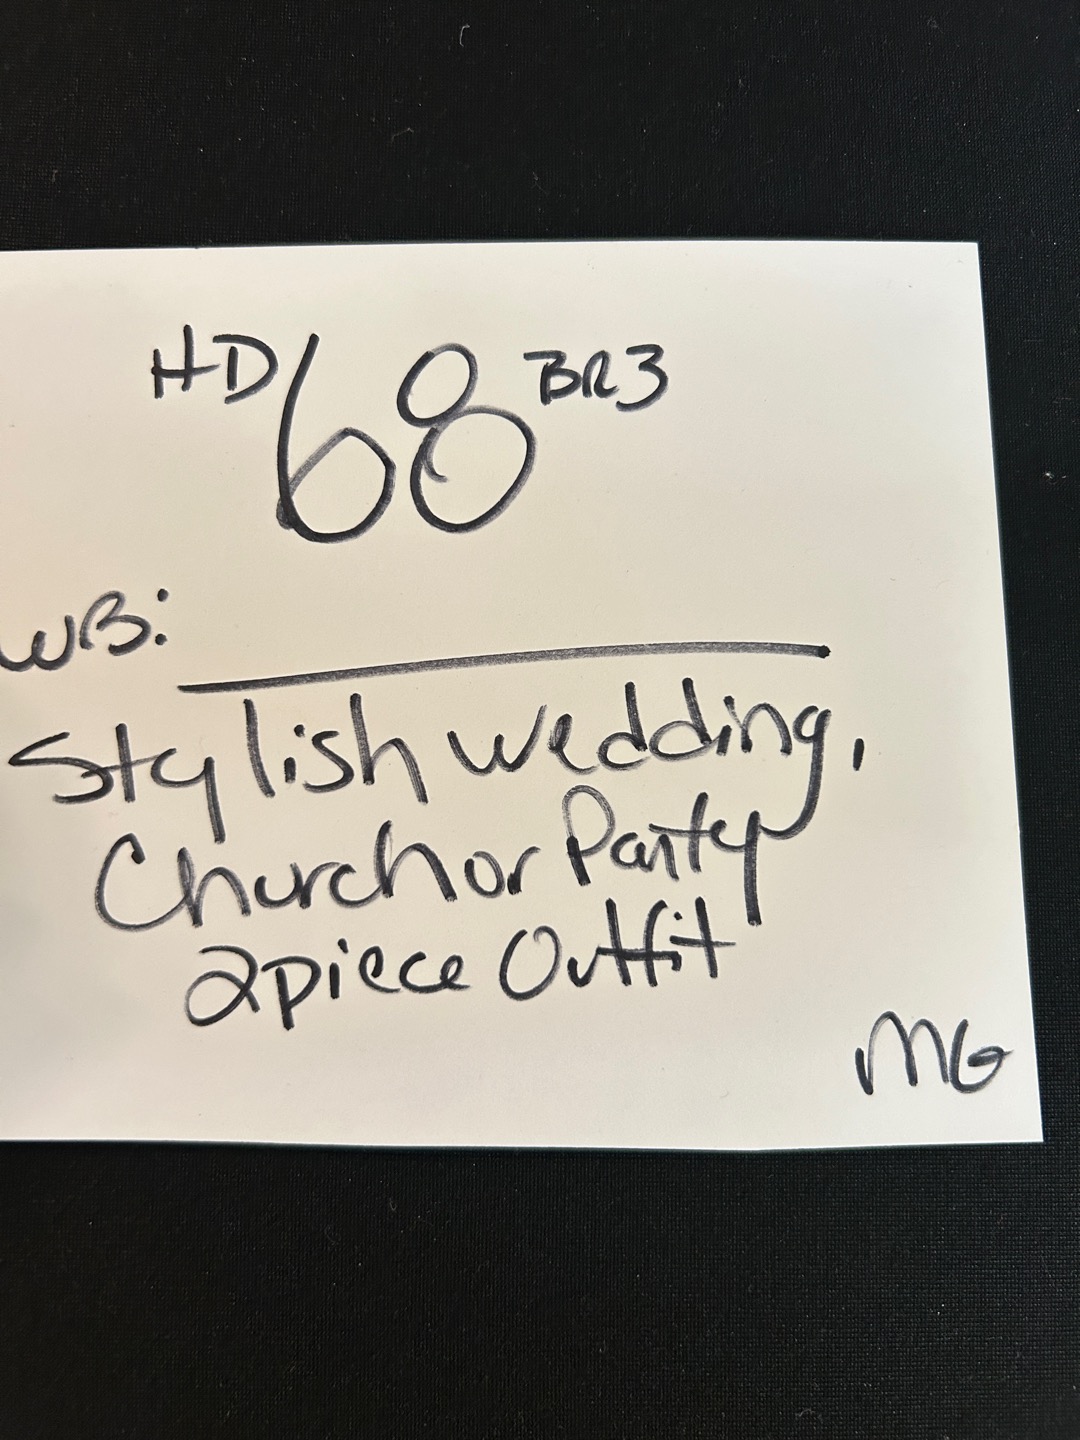 HD 68 BR3
WB:
Stylish wedding,
Church or Party
2piece Outfit
MG